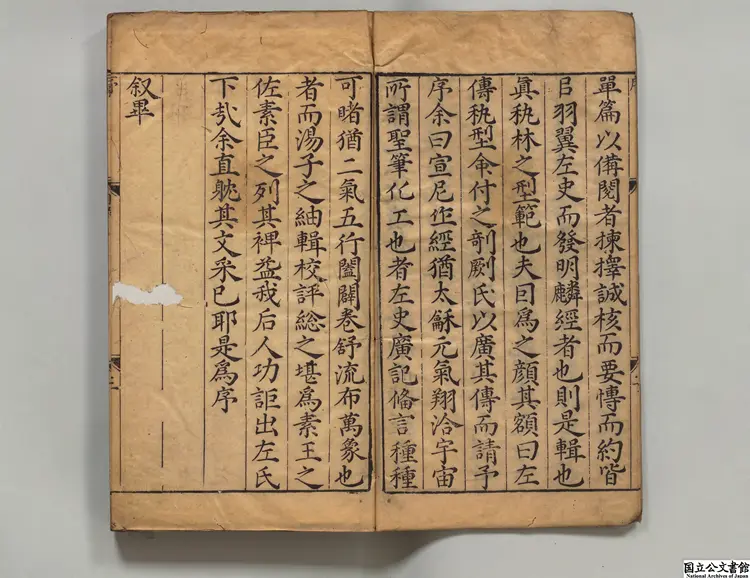 單篇以俻閱者揀擇誠核而要慱而約皆
㠯羽翼左史而發明麟經者也則是輯也
眞秇林之型範也夫曰爲之顔其額曰左
傳秇型命付之剞劂氏以廣其傳而請予
序余曰宣尼作經猶太龢元氣翔洽宇宙
所謂聖筆化工也者左史廣記俻言種種
可睹猶二氣五行闔闢卷舒流布萬象也
者而湯子之紬輯校評総之堪爲素王之
佐素臣之列其裨益我后人功詎出左氏
下㢤余直躭其文采已耶是爲序
叙畢
国立公文書館
National Archives of Japan